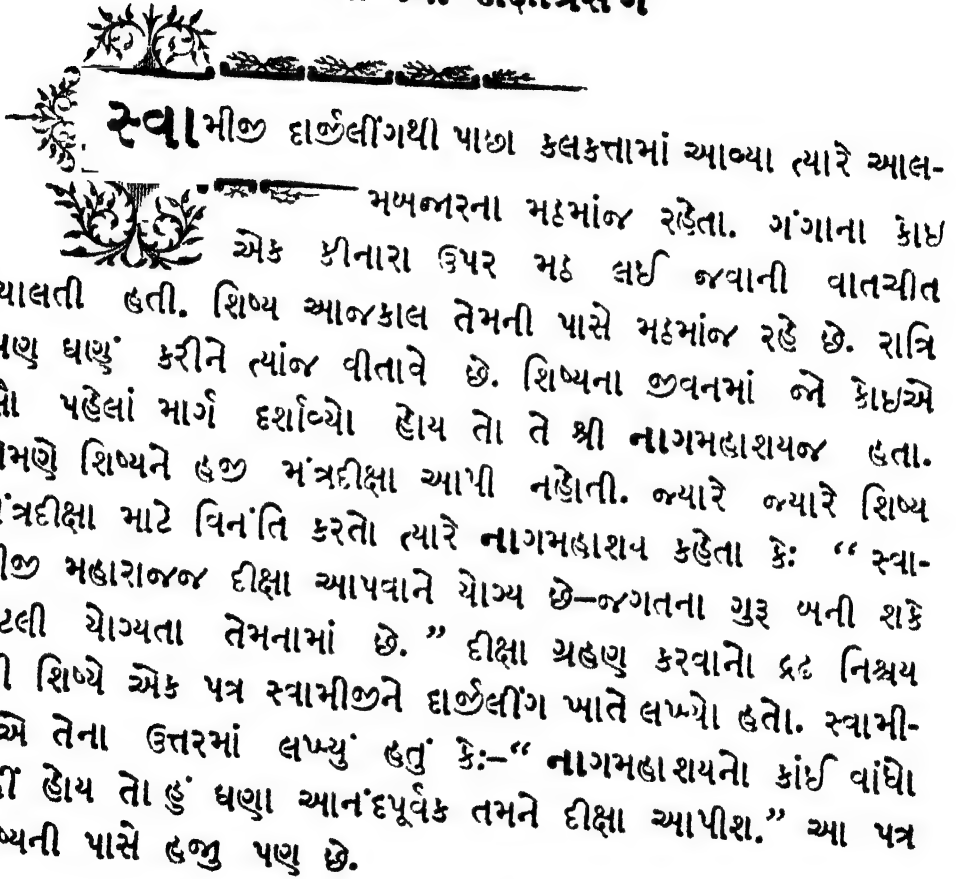 સ્વામીજી દાર્જીલીંગથી પાછા કલકત્તામાં આવ્યા ત્યારે આલ-
મબજારના મઠમાંજ રહેતા. ગંગાના કોઇ
એક કીનારા ઉપર મઠ લઈ જવાની વાતચીત
હતી. શિષ્ય આજકાલ તેમની પાસે મઠમાંજ રહે છે. રાત્રિ
ઘણું કરીને ત્યાંજ વીતાવે છે. શિષ્યના જીવનમાં જો કોઇએ
પહેલાં માર્ગ દર્શાવ્યો હોય તો તે શ્રી નાગમહાશયજ હતા.
શિષ્યને હજી મંત્રદીક્ષા આપી નહોતી. જ્યારે જ્યારે શિષ્ય
માટે વિનંતિ કરતો ત્યારે નાગમહાશય કહેતા કેઃ “ સ્વા-
મહારાજજ દીક્ષા આપવાને યોગ્ય છે–જગતના ગુરૂ બની શકે
યોગ્યતા તેમનામાં છે. ” દીક્ષા ગ્રહણ કરવાનો દ્રઢ નિશ્ચય
શિષ્યે એક પત્ર સ્વામીજીને દાર્જીલીંગ ખાતે લખ્યો હતો. સ્વામી-
તેના ઉત્તરમાં લખ્યું હતું કેઃ–“ નાગમહાશયનો કાંઈ વાંધો
હોય તો હું ઘણા આનંદપૂર્વક તમને દીક્ષા આપીશ.” આ પત્ર
પાસે હજી પણ છે.